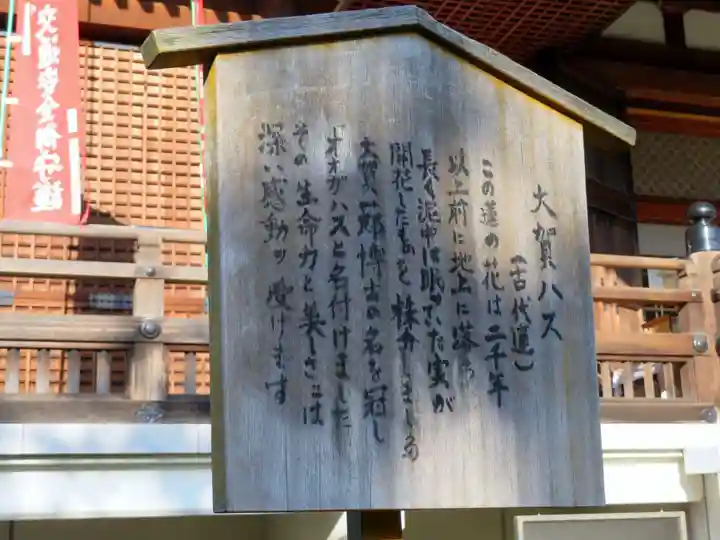 大賀ハス
(古代蓮)
この蓮の花は二千年
以上前に地上に落ち
長く泥中に眠っていた実が
開花したものを株分しましたの
大賀一郎博士の名を冠し
オオガハスと名付けました
その生命力と美しさには
深い感動を受けます